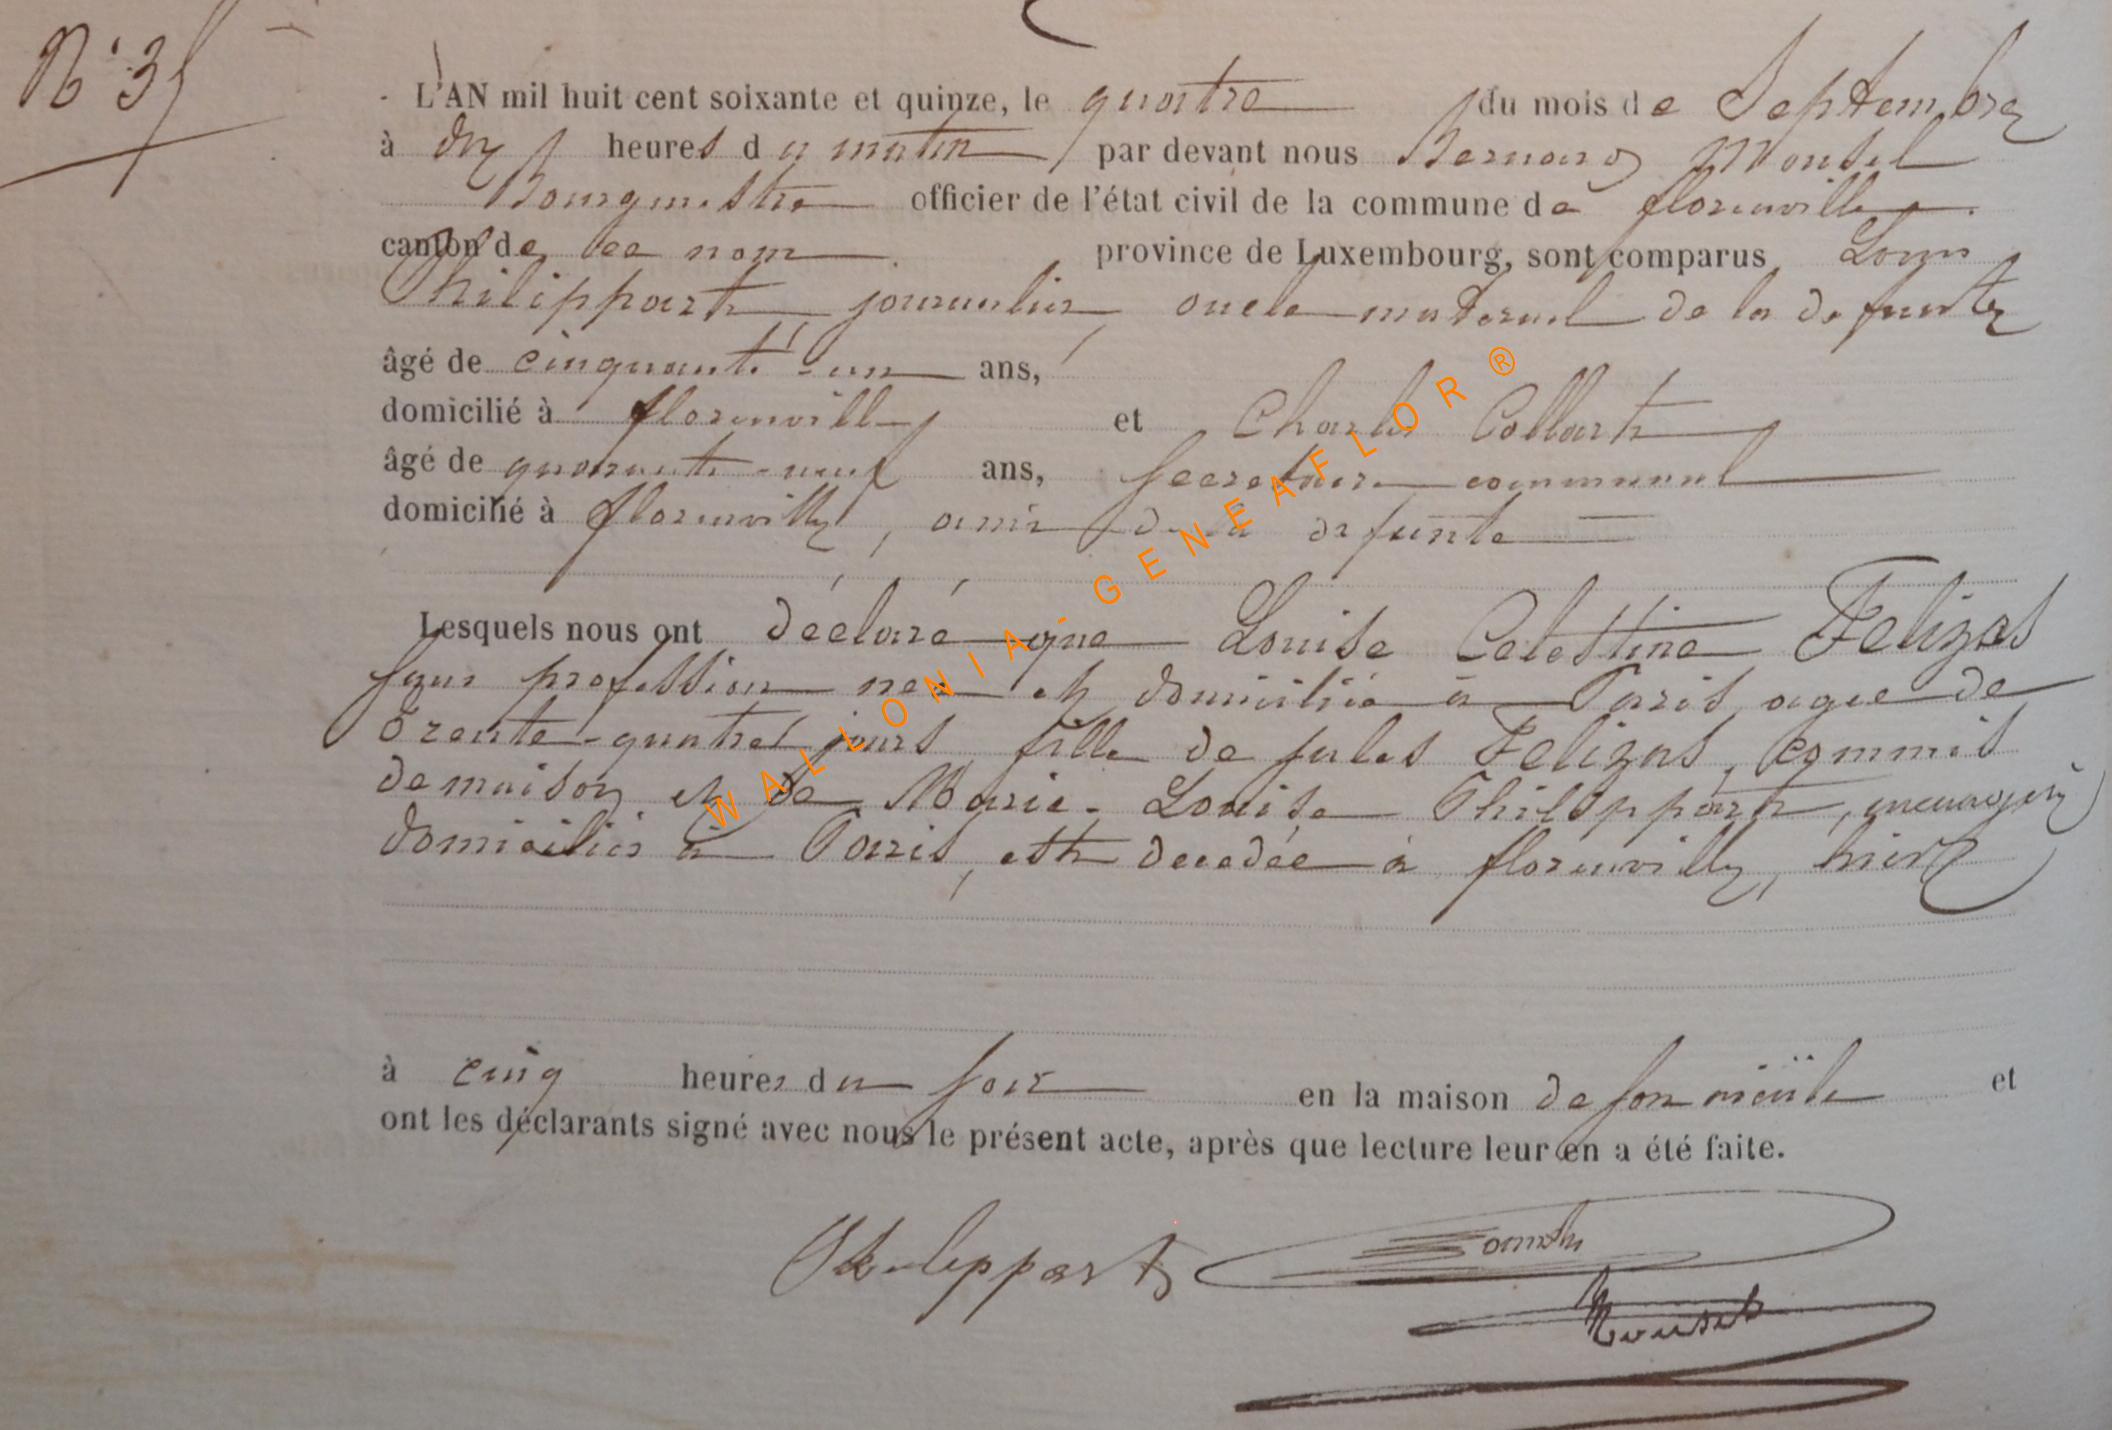 N° 35
L'AN mil huit cent soixante et quinze, le quatre du mois de Septembre
à dix heures du matin par devant nous Bernard Mousel
Bourgmestre officier de l'état civil de la commune de florenville
canton de ce nom province de Luxembourg, sont comparus Louis
Philippart, journalier, oncle maternel de la defunte
âgé de cinquante-un ans,
domicilié à florenville et Charles Collart
âgé de quarante-neuf ans, secretaire communal
domicilié à florenville, amis de la defunte
Lesquels nous ont déclaré que Louise Celestine Felizas
sans profession nee et domiciliée à Paris agee de
trente-quatre jours fille de jules Felizas, commis
de maison et de Marie-Louise Philippart, menagère
domiciliés à Paris, est decedée à florenville, hier
à cinq heures du soir en la maison de son et
ont les déclarants signé avec nous le présent acte, après que lecture leur en a été faite.
Philippart
Mousel
WALLONIA-GENEAFLOR®